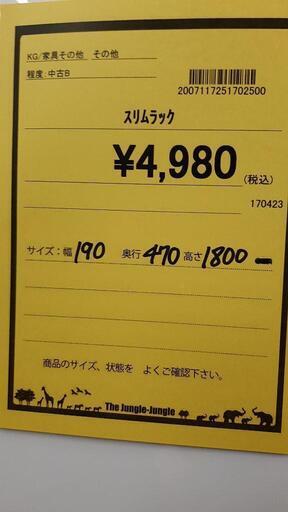 KG/家具その他 その他
程度:中古B
2007117251702500
スリムラック
¥4,980(税込)
170423
サイズ:幅190 奥行470高さ1800
商品のサイズ、状態を よくご確認下さい。
The Jungle-Jungle